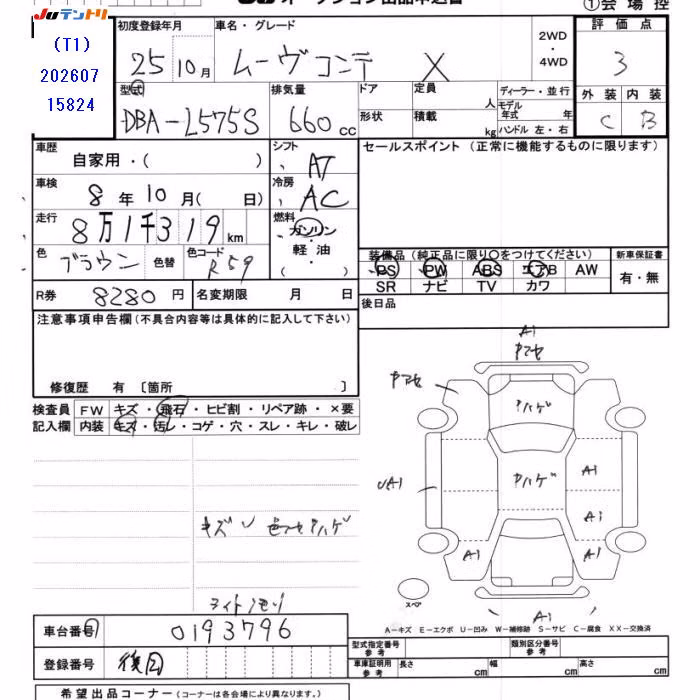 JUテントリ
オークション出品申込書
①会場控
(T1)
202607
15824
初度登録年月
25 10月
車名・グレード
ムーヴコンテ X
2WD
・
4WD
評価点
3
外装 内装
C B
型式
DBA-L575S
排気量
660 cc
ドア
形状
定員
人
積載
kg
ディーラー・並行
モデル年式
年
ハンドル 左・右
車歴
自家用・( )
シフト
AT
セールスポイント (正常に機能するものに限ります)
車検
8年10月( 日)
冷房
AC
走行
8万1千319km
燃料
ガソリン
・
軽油
( )
色
ブラウン
色替
色コード
R59
装備品 (純正品に限り○をつけてください)
PS PW ABS エアB AW
SR ナビ TV カワ
新車保証書
有・無
R券
8280円
名変期限
月 日
後日品
注意事項申告欄(不具合内容等は具体的に記入して下さい)
修復歴 有〔箇所 〕
検査員
記入欄
FW キズ・飛石・ヒビ割・リペア跡・×要
内装 キズ・汚レ・コゲ・穴・スレ・キレ・破レ
A1
A1
UA1
A1
A1
A1
A1
スペア
ライトクモリ
A-キズ E-エクボ U-凹み W-補修跡 S-サビ C-腐食 XX-交換済
車台番号
0193796
登録番号
後日
型式指定番号
参考
類別区分番号
参考
車庫証明用
参考
長さ
cm
幅
cm
高さ
cm
希望出品コーナー (コーナーは各会場により異なります。)